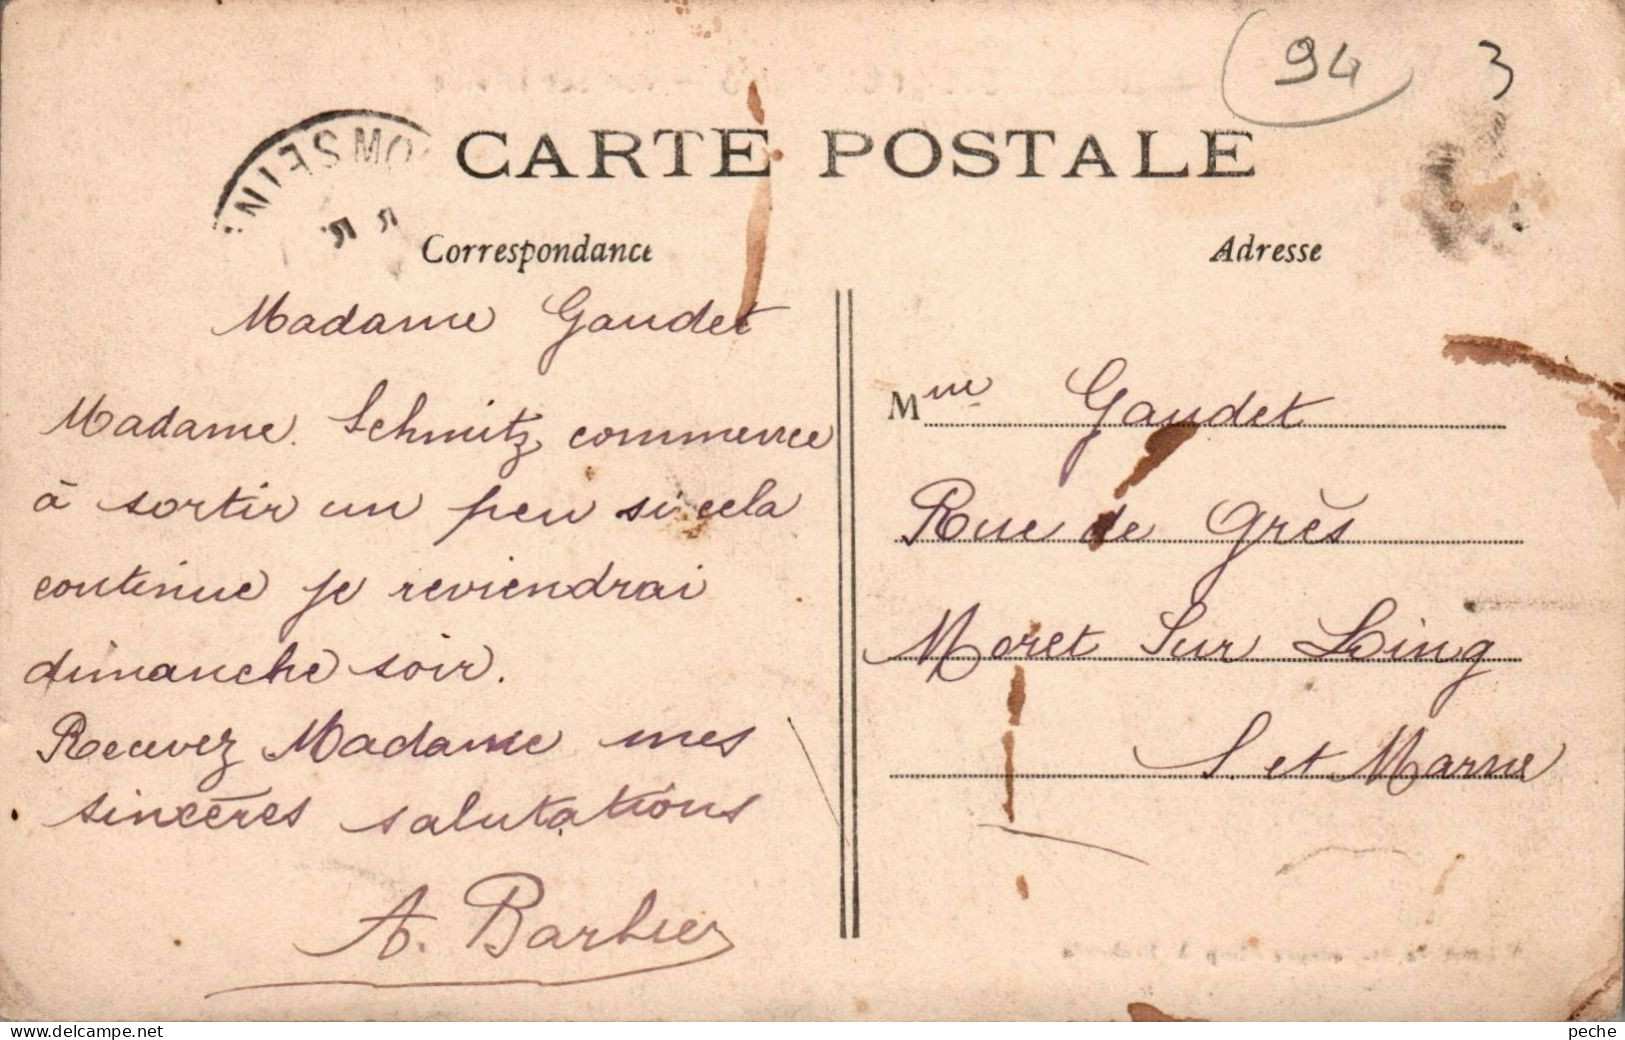 94
3
CARTE POSTALE
Correspondance
Adresse
Madame Gaudet
Madame. Schmitz commence
à sortir un peu si cela
continue je reviendrai
dimanche soir.
Recevez Madame mes
sincères salutations
A. Barbier
Mme Gaudet
Rue de Grès
Moret Sur Loing
S. et Marne
www.delcampe.net
peche